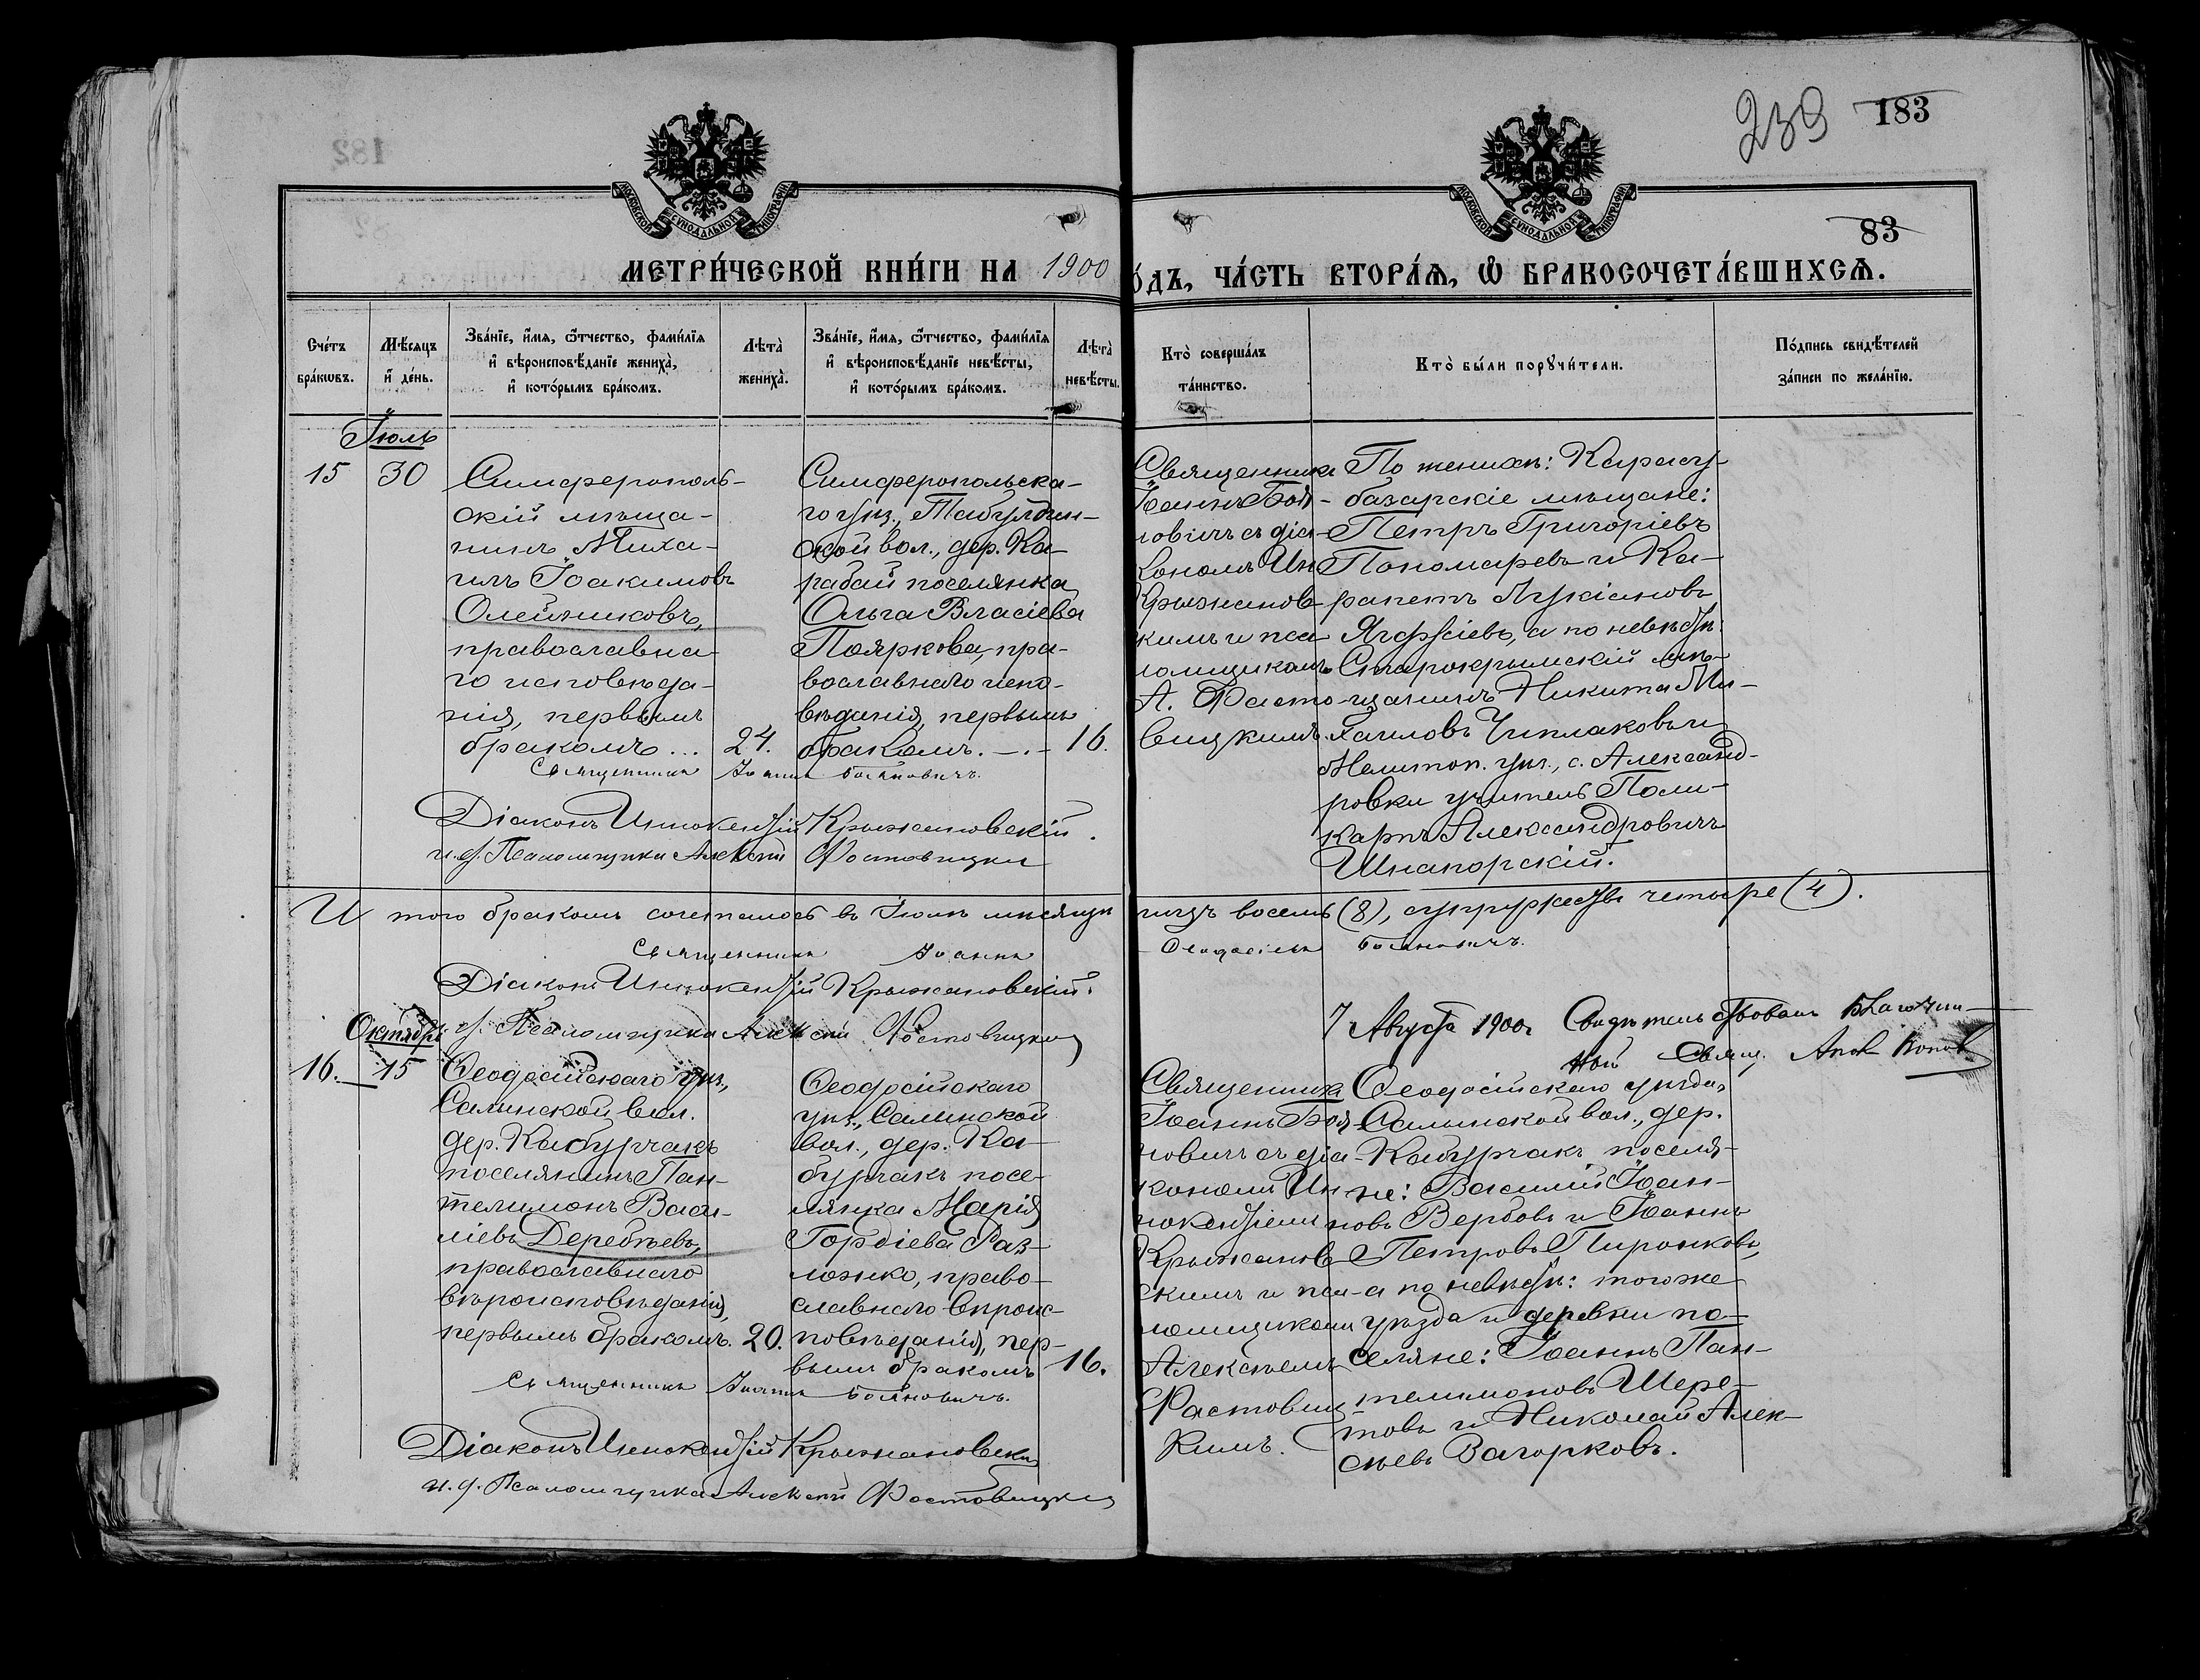 239 183
83
МОСКОВСКОЙ СѴНОДАЛЬНОЙ ТИПОГРАФІИ
МОСКОВСКОЙ СѴНОДАЛЬНОЙ ТИПОГРАФІИ
МЕТРИ́ЧЕСКОЙ КНИ́ГИ НА 1900 ГО́ДЪ, ЧА́СТЬ ВТОРА́Я, Ѡ БРАКОСОЧЕТА́ВШИХСЯ.
Сче́тъ
бра́кωвъ.
Мѣ́сяцъ
и҆ де́нь.
Зва́нїе, и҆́мя, ѿтчество, фами́лїя
и҆ вѣроисповѣ́данїе жениха̀,
и҆ кото́рымъ бра́комъ.
Лѣта̀
жениха̀.
Зва́нїе, и҆́мя, ѿтчество, фами́лїя
и҆ вѣроисповѣ́данїе невѣ́сты,
и҆ кото́рымъ бра́комъ.
Лѣта̀
невѣ́сты.
Кто̀ соверша́лъ
та́инство.
Кто̀ бы́ли порꙋчи́тели.
По́дпись свидѣ́телей
за́писи по жела́нїю.
Іюль
15 30
Симферополь-
скій мѣща-
нинъ Миха-
илъ Іоакимовъ
Олейниковъ,
православна-
го исповѣда-
нія, первымъ
бракомъ... 24.
Симферопольска-
го уѣз., Табулдин-
ской вол., дер. Ка-
рабай поселянка
Ольга Власіева
Пояркова, пра-
вославнаго испо-
вѣданія, первымъ
бракомъ. 16.
Священникъ
Іоаннъ Боя-
новичъ съ діа-
кономъ Ин.
Крыжановс-
кимъ и пса-
ломщикомъ
А. Фасто-
вицкимъ.
По женихѣ: Карасу-
базарскіе мѣщане:
Петръ Григоріевъ
Пономаревъ и Ка-
рапетъ Лукіановъ
а по невѣстѣ:
Старокрымскій мѣ-
щанинъ Никита Ми-
хаиловъ Чиплаковъ и
Мелитоп. уѣз., с. Александ-
ровки учитель Поли-
карпъ Александровичъ
Шнапорскій.
Священникъ Іоаннъ Бояновичъ.
Діаконъ Иннокентій Крыжановскій.
и. д. Псаломщика Алексѣй Фастовицкій
Итого бракомъ сочеталось въ Іюлѣ мѣсяцѣ лицъ восемь (8), супружествъ четыре (4).
Священникъ Іоаннъ Бояновичъ.
Діаконъ Иннокентій Крыжановскій.
Псаломщика Алексѣй Фастовицкій
7 Августа 1900 г. Свидѣтельствовалъ Благочин-
ный Свящ. Поповъ
Октябрь
16. 15
Ѳеодосійскаго уѣз.,
Салинской вол.
дер. Кабурчакъ
поселянинъ Пан-
телимонъ Васи-
ліевъ Деребѣевъ,
православнаго
вѣроисповѣданія,
первымъ бракомъ. 20.
Ѳеодосійскаго
уѣз., Салинской
вол., дер. Ка-
бурчакъ посе-
лянка Марія
Гордіева Раз-
ложко, право-
славнаго вѣроис-
повѣданія, пер-
вымъ бракомъ 16.
Священникъ
Іоаннъ Боя-
новичъ съ діа-
кономъ Ин-
нокентіемъ
Крыжановс-
кимъ и пса-
ломщикомъ
Алексѣемъ
Фастовиц-
кимъ.
Ѳеодосійскаго уѣзда,
Салинской вол., дер.
Кабурчакъ поселя-
не: Василій Іоан-
новъ Вербовъ и Іоаннъ
Петровъ Пиронковъ,
а по невѣстѣ: того же
уѣзда и деревни по-
селяне: Іоаннъ Пан-
телимоновъ Шере-
товъ и Николай Алек-
сѣевъ Вагорковъ.
Священникъ Іоаннъ Бояновичъ.
Діаконъ Иннокентій Крыжановскій
и. д. Псаломщика Алексѣй Фастовицкій